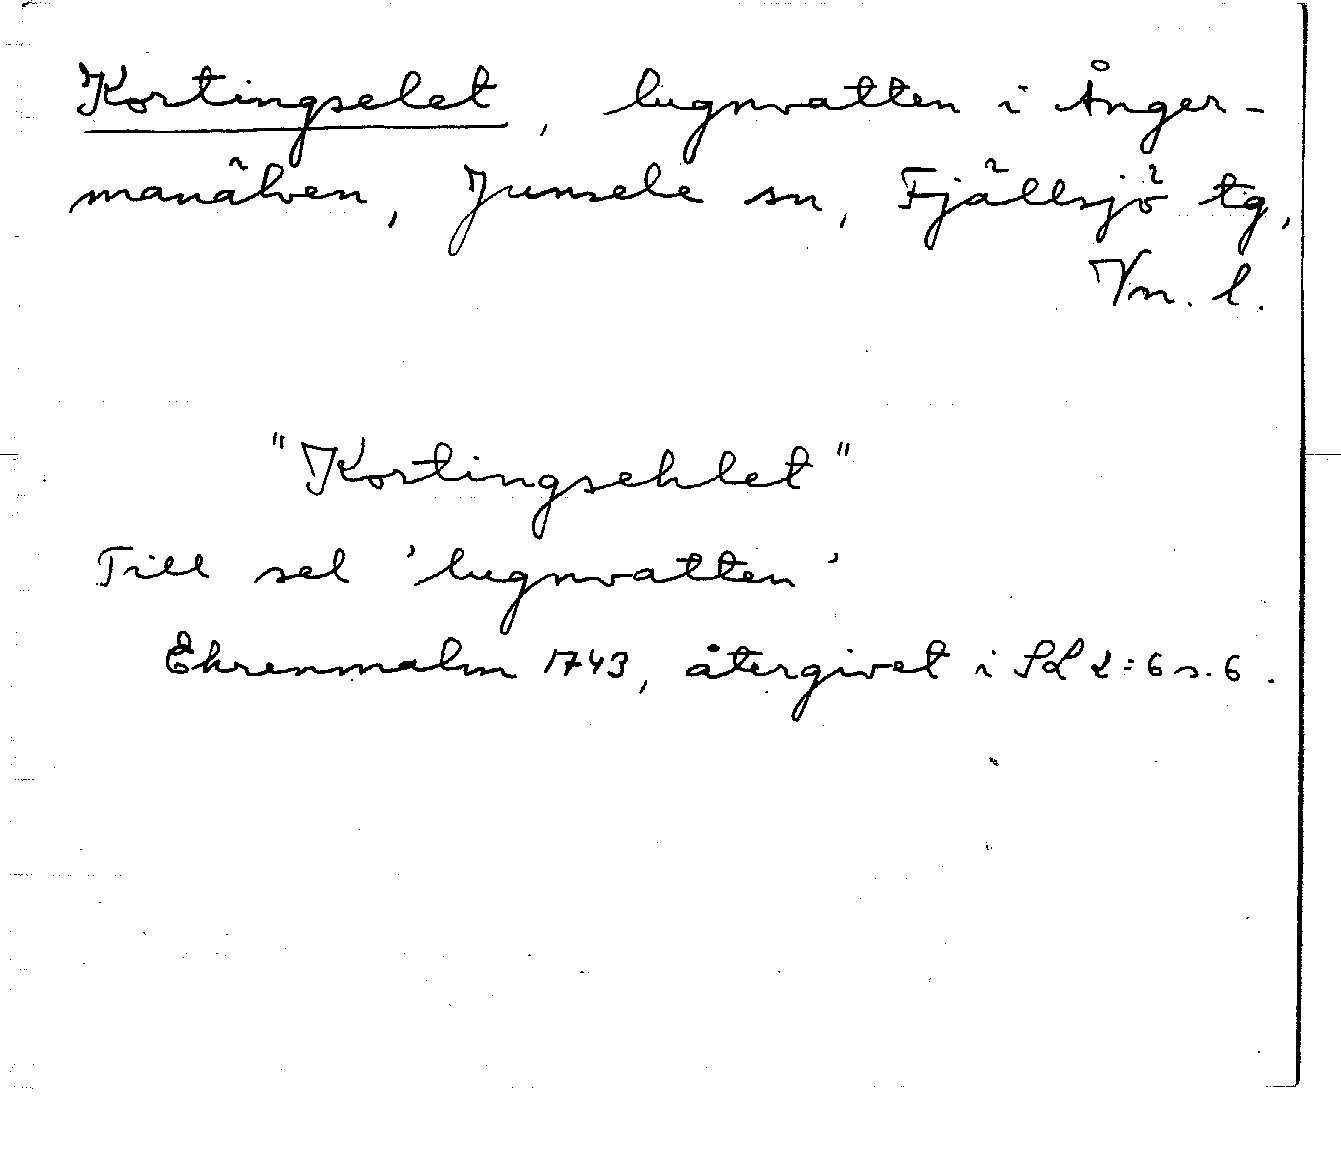 Kortingselet, lugnvatten i Ånger-
manälven, Junsele sn, Fjällsjö tg,
Vn. l.
"Kortingsehlet"
Till sel 'lugnvatten'
Ehrenmalm 1743, återgivet i SL 2:6 s. 6.